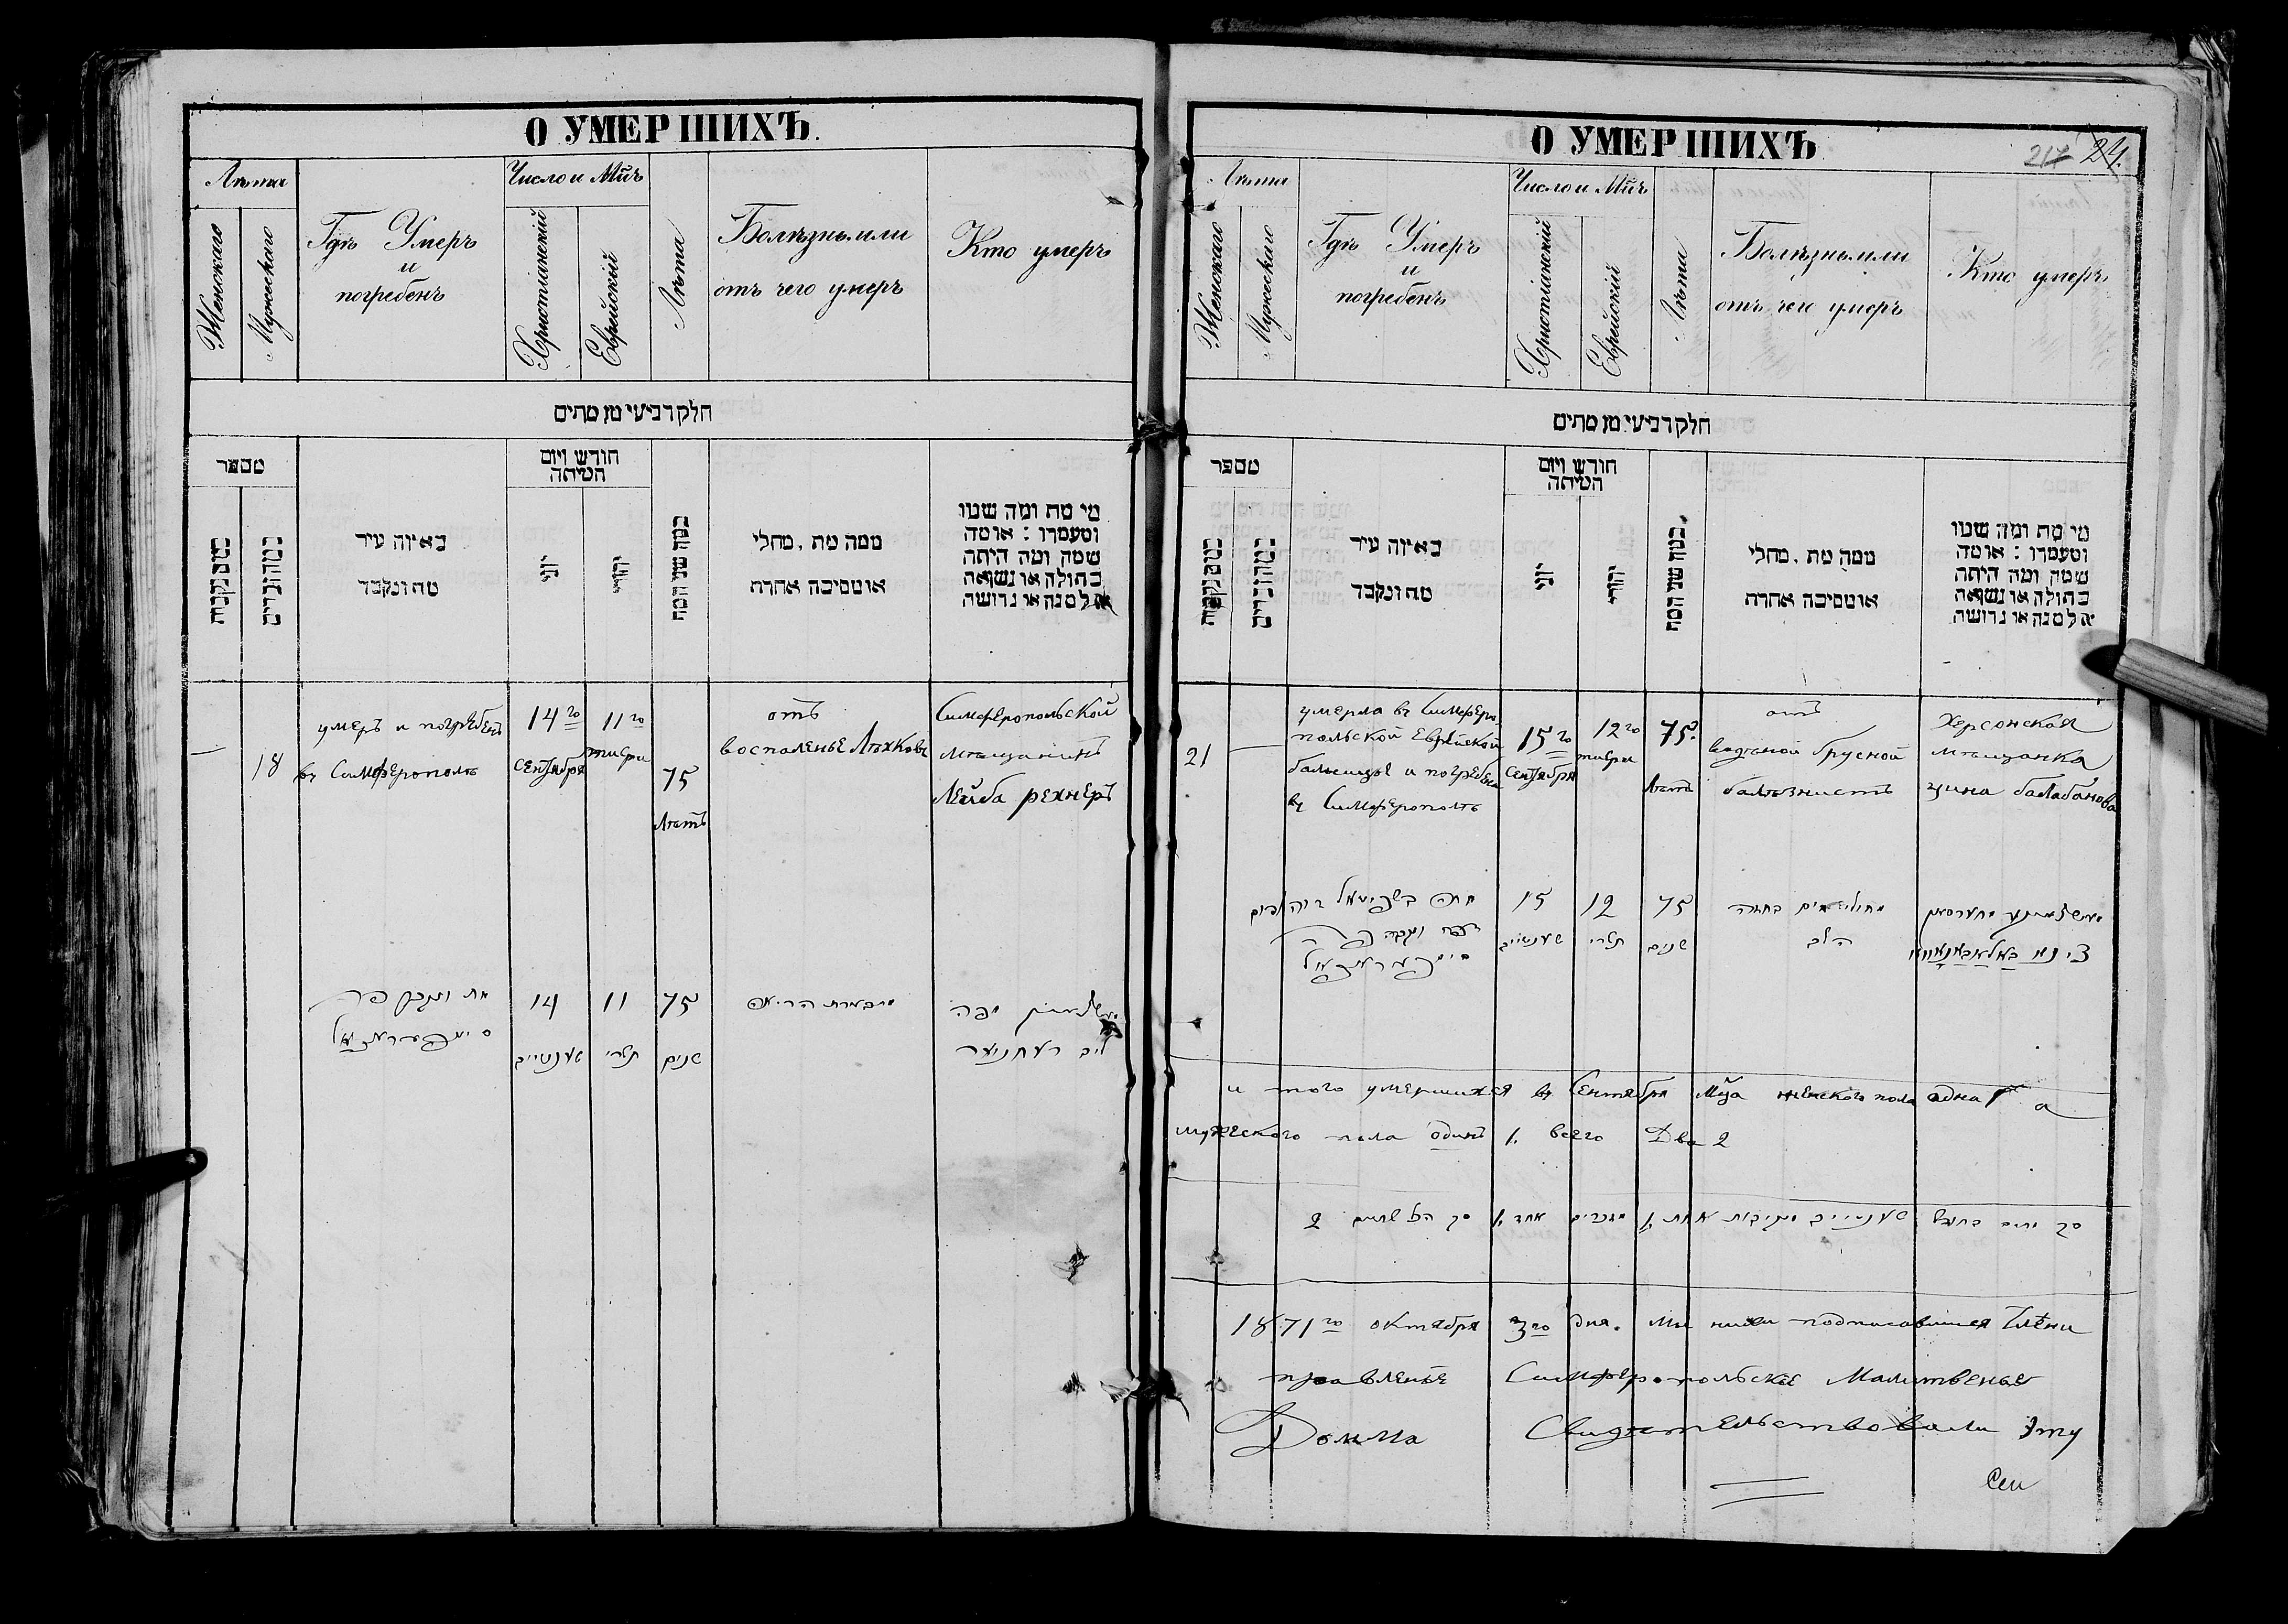 О УМЕРШИХЪ.
Лѣта
Женскаго
Мужескаго
Гдѣ Умеръ
и
погребенъ
Число и Мцъ
Христіанскій
Еврейскій
Лѣта
Болѣзнь или
отъ чего умеръ
Кто умеръ
חלק רביעי מן מתים
מספר
במספר נקבות
במה זכרים
באיזה עיר
מת ונקבר
חודש ויום
המיתה
יוני
יהודי
כמה שני המת
ממה מת . מחלי
או מסיבה אחרת
מי מת ומה שמו
ומעמדו : או מה
שמה ומה היתה
בתולה או נשואה
אלמנה או גרושה
—
18
умеръ и погребенъ
въ Симферополѣ
14го
сентября
11го
тишри
75
лѣтъ
отъ
воспаленье Лѣхковъ
Симферопольской
мѣщанинъ
Лейба рехнеръ
מת ונקבר פה
סימפעראפאל
14
סענטייב
11
תשרי
75
שנים
ליב רעחניער
О УМЕРШИХЪ
217 24.
Лѣта
Женскаго
Мужескаго
Гдѣ Умеръ
и
погребенъ
Число и Мцъ
Христіанскій
Еврейскій
Лѣта
Болѣзнь или
отъ чего умеръ
Кто умеръ
חלק רביעי מן מתים
מספר
במספר נקבות
במה זכרים
באיזה עיר
מת ונקבר
חודש ויום
המיתה
יוני
יהודי
כמה שני המת
ממה מת . מחלי
או מסיבה אחרת
מי מת ומה שמו
ומעמדו : או מה
שמה ומה היתה
בתולה או נשואה
אלמנה או גרושה
21
—
умерла въ Симферо
польской Еврейской
больницѣ и погребена
въ Симферополѣ
15го
сентября
12го
тишри
75.
лѣтъ
отъ
водяной грусной
балѣзнистъ
Херсонская
мѣщанка
цина балабанова
15
סענטייב
12
תשרי
75
שנים
הלב
צינא באלאבאנאווא
и того умершихся въ Сентября Мца женского пола одна 1 а
мужеского пола одинъ 1. всего Два 2
סך מתים בחודש סענטייב נקיבות אחת 1, זכרים אחד 1, סך הכל שתים 2
1871го октября 3го дня. Мы ниже подписавшися Члени
правленье Симферопольске Малитвенья
Домма Свидѣтельствовали эту
Сеи